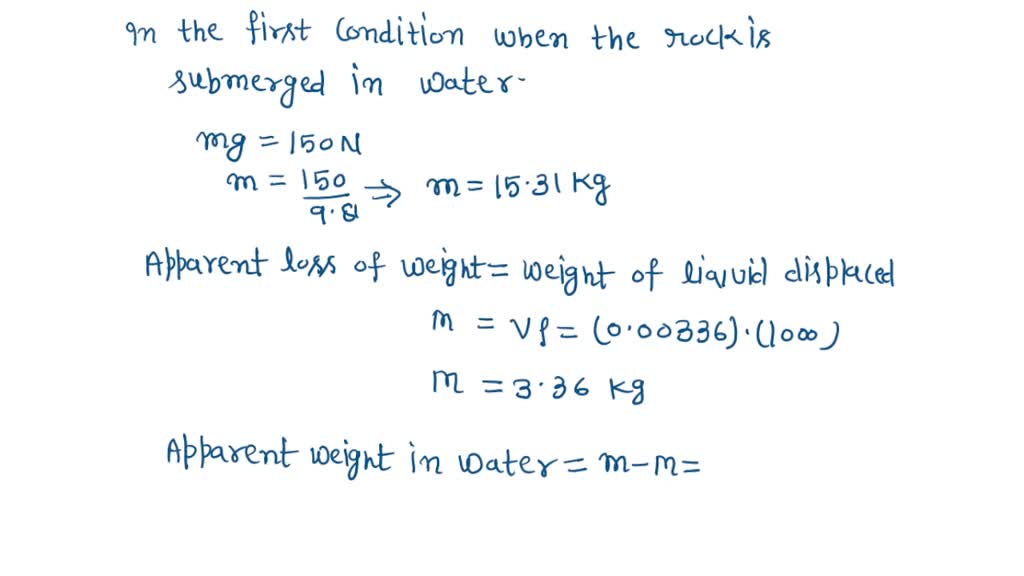 In the first condition when the rock is
submerged in water.
mg = 150 N
m = 150/9.8 ⇒ m = 15.31 Kg
Apparent loss of weight = weight of liquid displaced
m = Vρ = (0.00336).(1000)
m = 3.36 kg
Apparent weight in water = m-m =